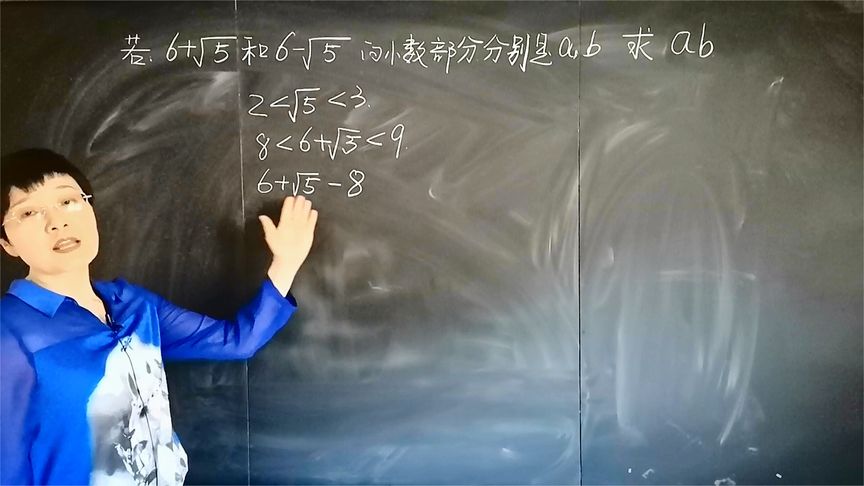 若 6+√5 和 6-√5 的小数部分分别是a,b 求 ab
2<√5<3.
8<6+√5<9.
6+√5-8